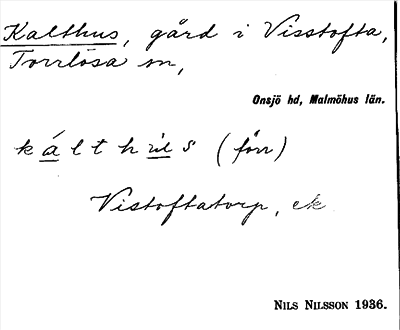 Kalthus, gård i Visstofta,
Torrlösa sn,
Onsjö hd, Malmöhus län.
kálthùs (förr)
Vistoftatorp, ek
Nils Nilsson 1936.